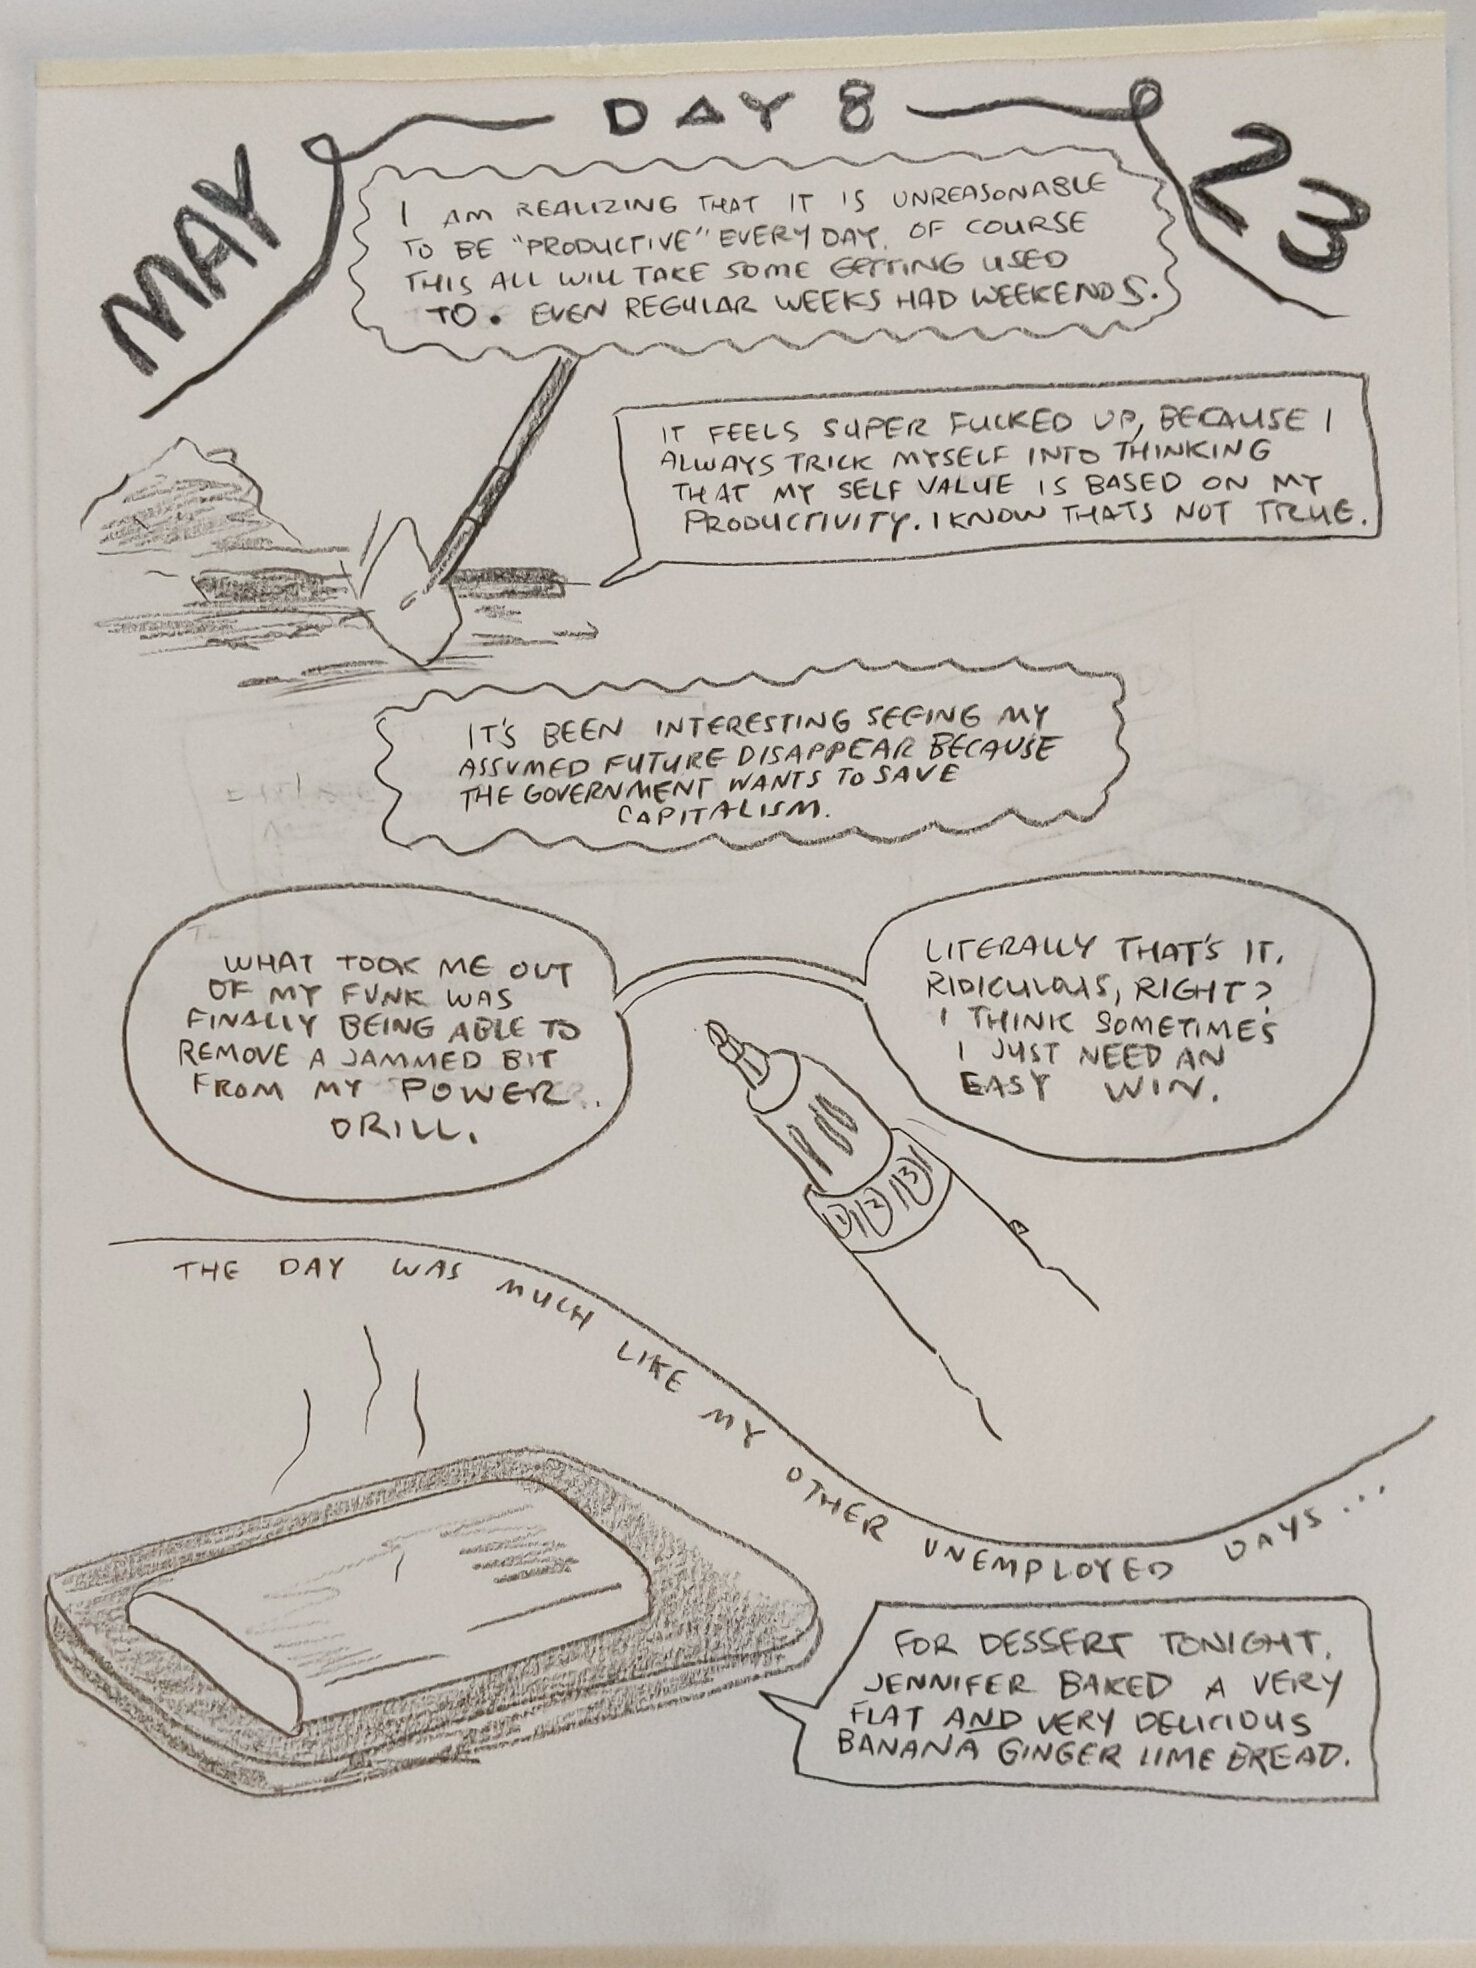 MAY
DAY 8
23
I AM REALIZING THAT IT IS UNREASONABLE
TO BE "PRODUCTIVE" EVERY DAY. OF COURSE
THIS ALL WILL TAKE SOME GETTING USED
TO. EVEN REGULAR WEEKS HAD WEEKENDS.
IT FEELS SUPER FUCKED UP, BECAUSE I
ALWAYS TRICK MYSELF INTO THINKING
THAT MY SELF VALUE IS BASED ON MY
PRODUCTIVITY. I KNOW THATS NOT TRUE.
IT'S BEEN INTERESTING SEEING MY
ASSUMED FUTURE DISAPPEAR BECAUSE
THE GOVERNMENT WANTS TO SAVE
CAPITALISM.
WHAT TOOK ME OUT
OF MY FUNK WAS
FINALLY BEING ABLE TO
REMOVE A JAMMED BIT
FROM MY POWER
DRILL.
LITERALLY THAT'S IT.
RIDICULOUS, RIGHT?
I THINK SOMETIMES
I JUST NEED AN
EASY WIN.
1 2 3
THE DAY WAS MUCH LIKE MY OTHER UNEMPLOYED DAYS...
FOR DESSERT TONIGHT,
JENNIFER BAKED A VERY
FLAT AND VERY DELICIOUS
BANANA GINGER LIME BREAD.